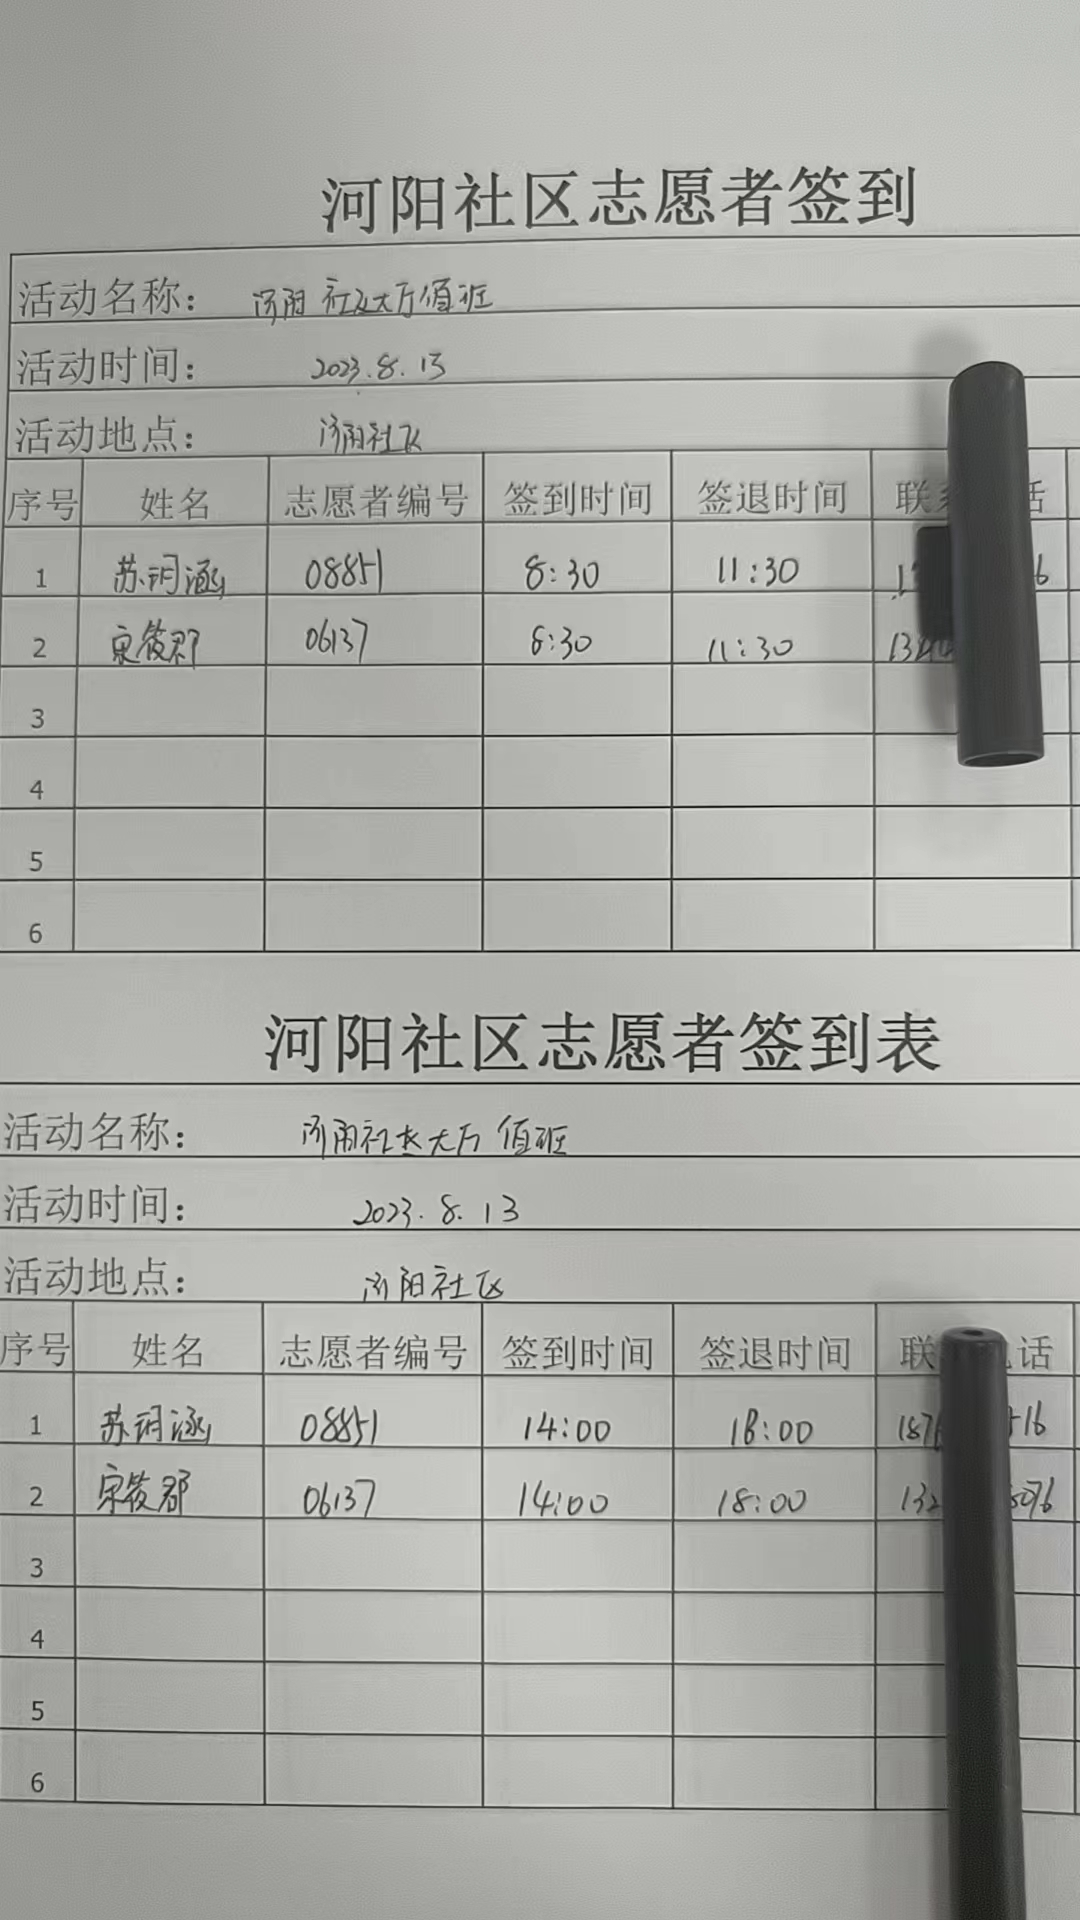 河阳社区志愿者签到
活动名称： 河阳社区大厅值班
活动时间： 2023.8.13
活动地点： 河阳社区
序号 姓名 志愿者编号 签到时间 签退时间 联 话
1 苏玥涵 08851 8:30 11:30
2 宋筱郡 06137 8:30 11:30
3
4
5
6
河阳社区志愿者签到表
活动名称： 河阳社区大厅 值班
活动时间： 2023.8.13
活动地点： 河阳社区
序号 姓名 志愿者编号 签到时间 签退时间 联 话
1 苏玥涵 08851 14:00 18:00 187 516
2 宋筱郡 06137 14:00 18:00 132
3
4
5
6